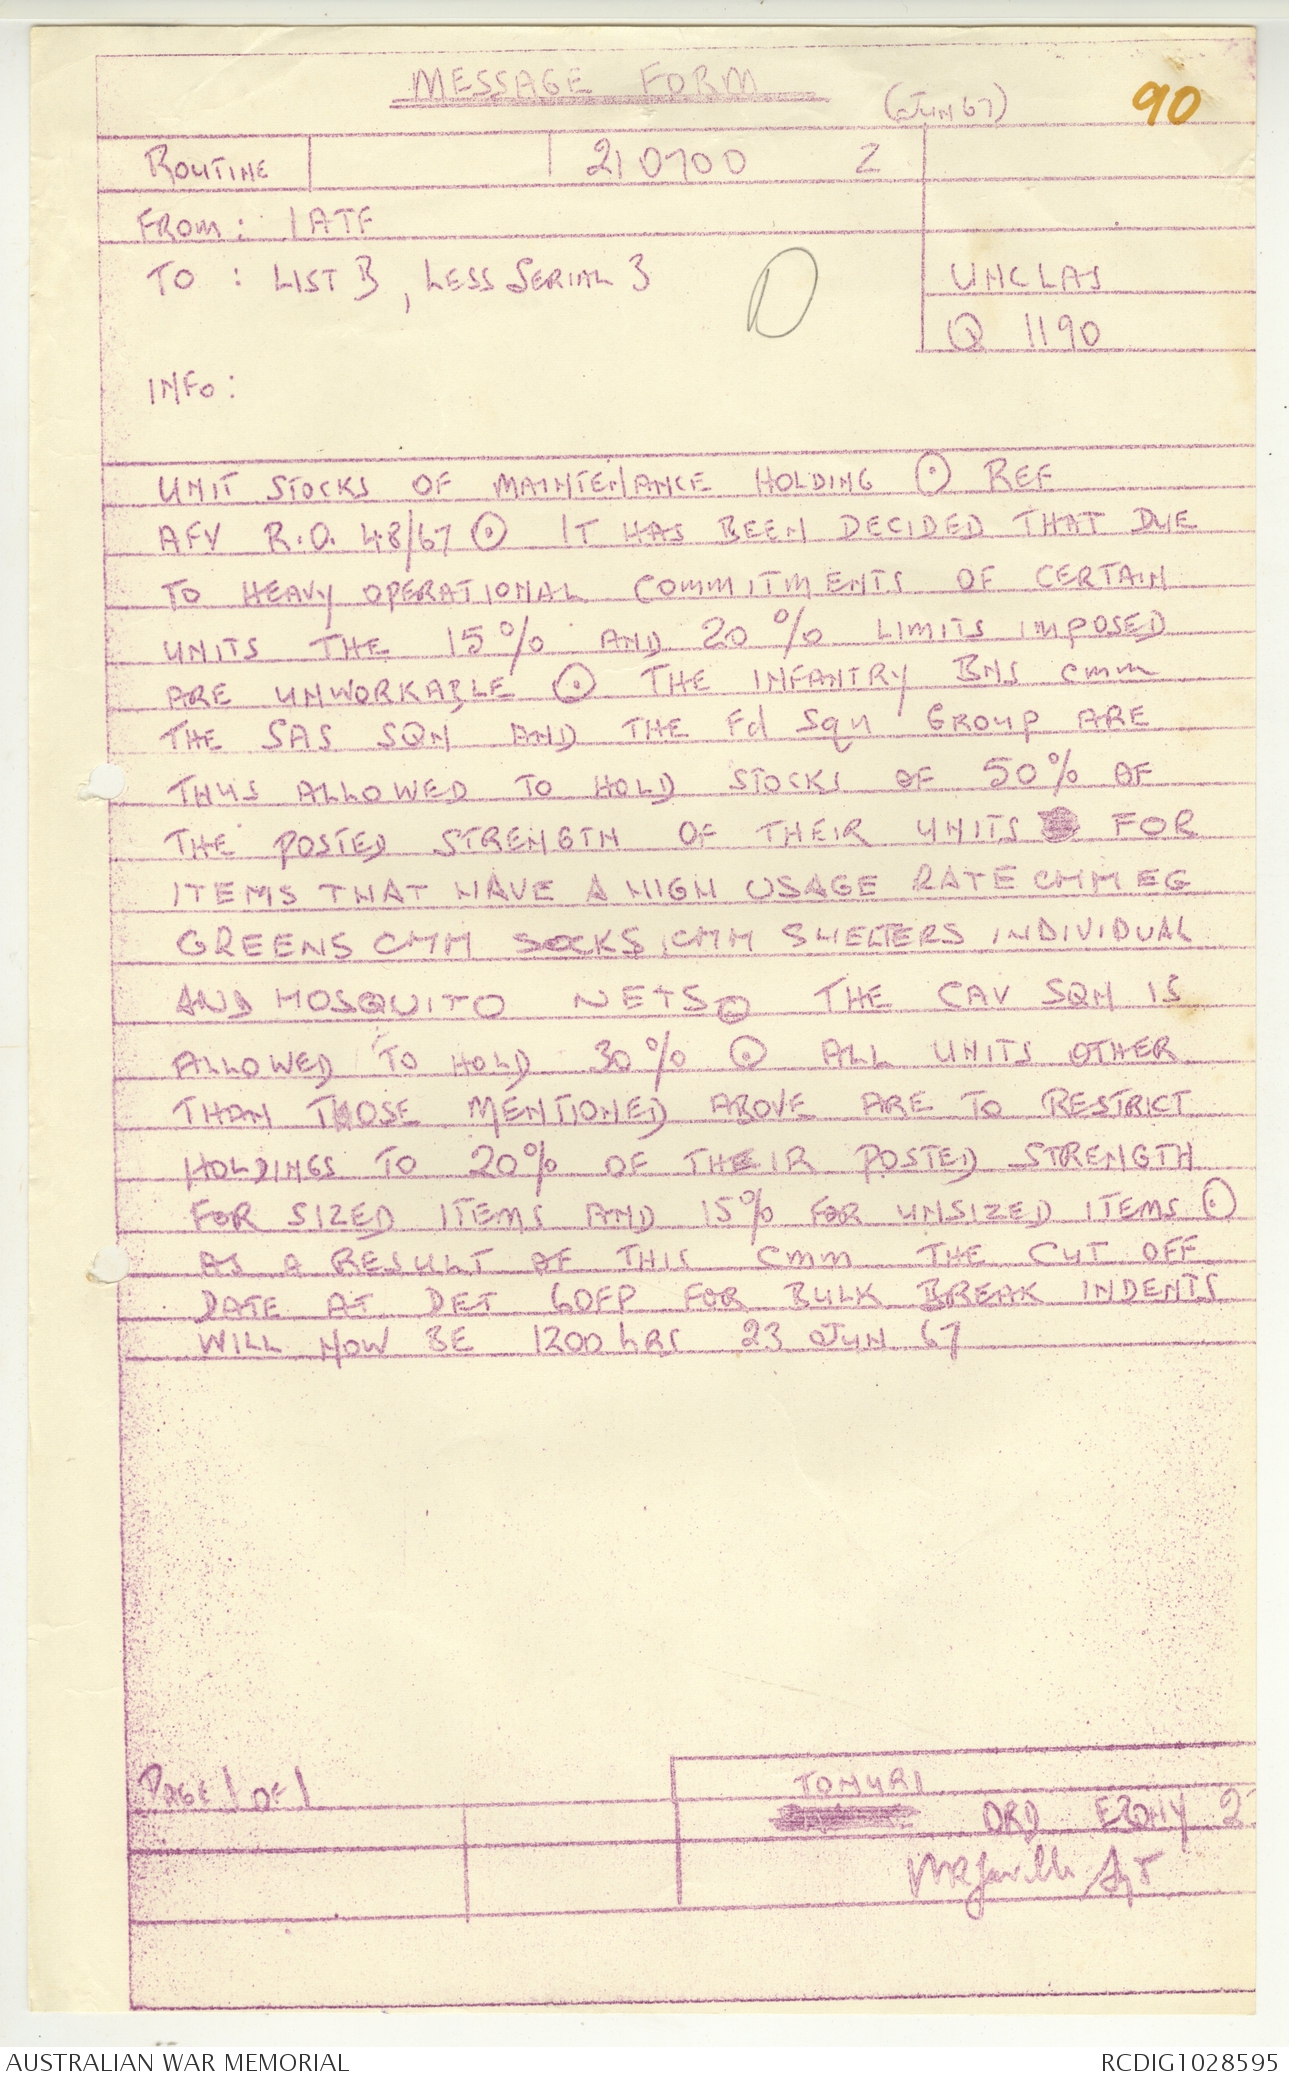 MESSAGE FORM
(JUN 67)
90
ROUTINE 210700 Z
FROM: 1ATF
TO : LIST B, LESS SERIAL 3
D
UNCLAS
Q 1190
INFO:
UNIT STOCKS OF MAINTENANCE HOLDING ⊙ REF
AFV R.O. 48/67 ⊙ IT HAS BEEN DECIDED THAT DUE
TO HEAVY OPERATIONAL COMMITMENTS OF CERTAIN
UNITS THE 15% AND 20% LIMITS IMPOSED
ARE UNWORKABLE ⊙ THE INFANTRY BNS cmm
THE SAS SQN AND THE Fd Sqn GROUP ARE
THUS ALLOWED TO HOLD STOCKS OF 50% OF
THE POSTED STRENGTH OF THEIR UNITS FOR
ITEMS THAT HAVE A HIGH USAGE RATE CMM EG
GREENS CMM SOCKS CMM SHELTERS INDIVIDUAL
AND MOSQUITO NETS ⊙ THE CAV SQN IS
ALLOWED TO HOLD 30% ⊙ ALL UNITS OTHER
THAN THOSE MENTIONED ABOVE ARE TO RESTRICT
HOLDINGS TO 20% OF THEIR POSTED STRENGTH
FOR SIZED ITEMS AND 15% FOR UNSIZED ITEMS ⊙
AS A RESULT OF THIS cmm THE CUT OFF
DATE AT DET 6OFP FOR BULK BREAK INDENTS
WILL NOW BE 1200 hRS 23 JUN 67
PAGE 1 OF 1
ORD EBONY
AUSTRALIAN WAR MEMORIAL
RCDIG1028595